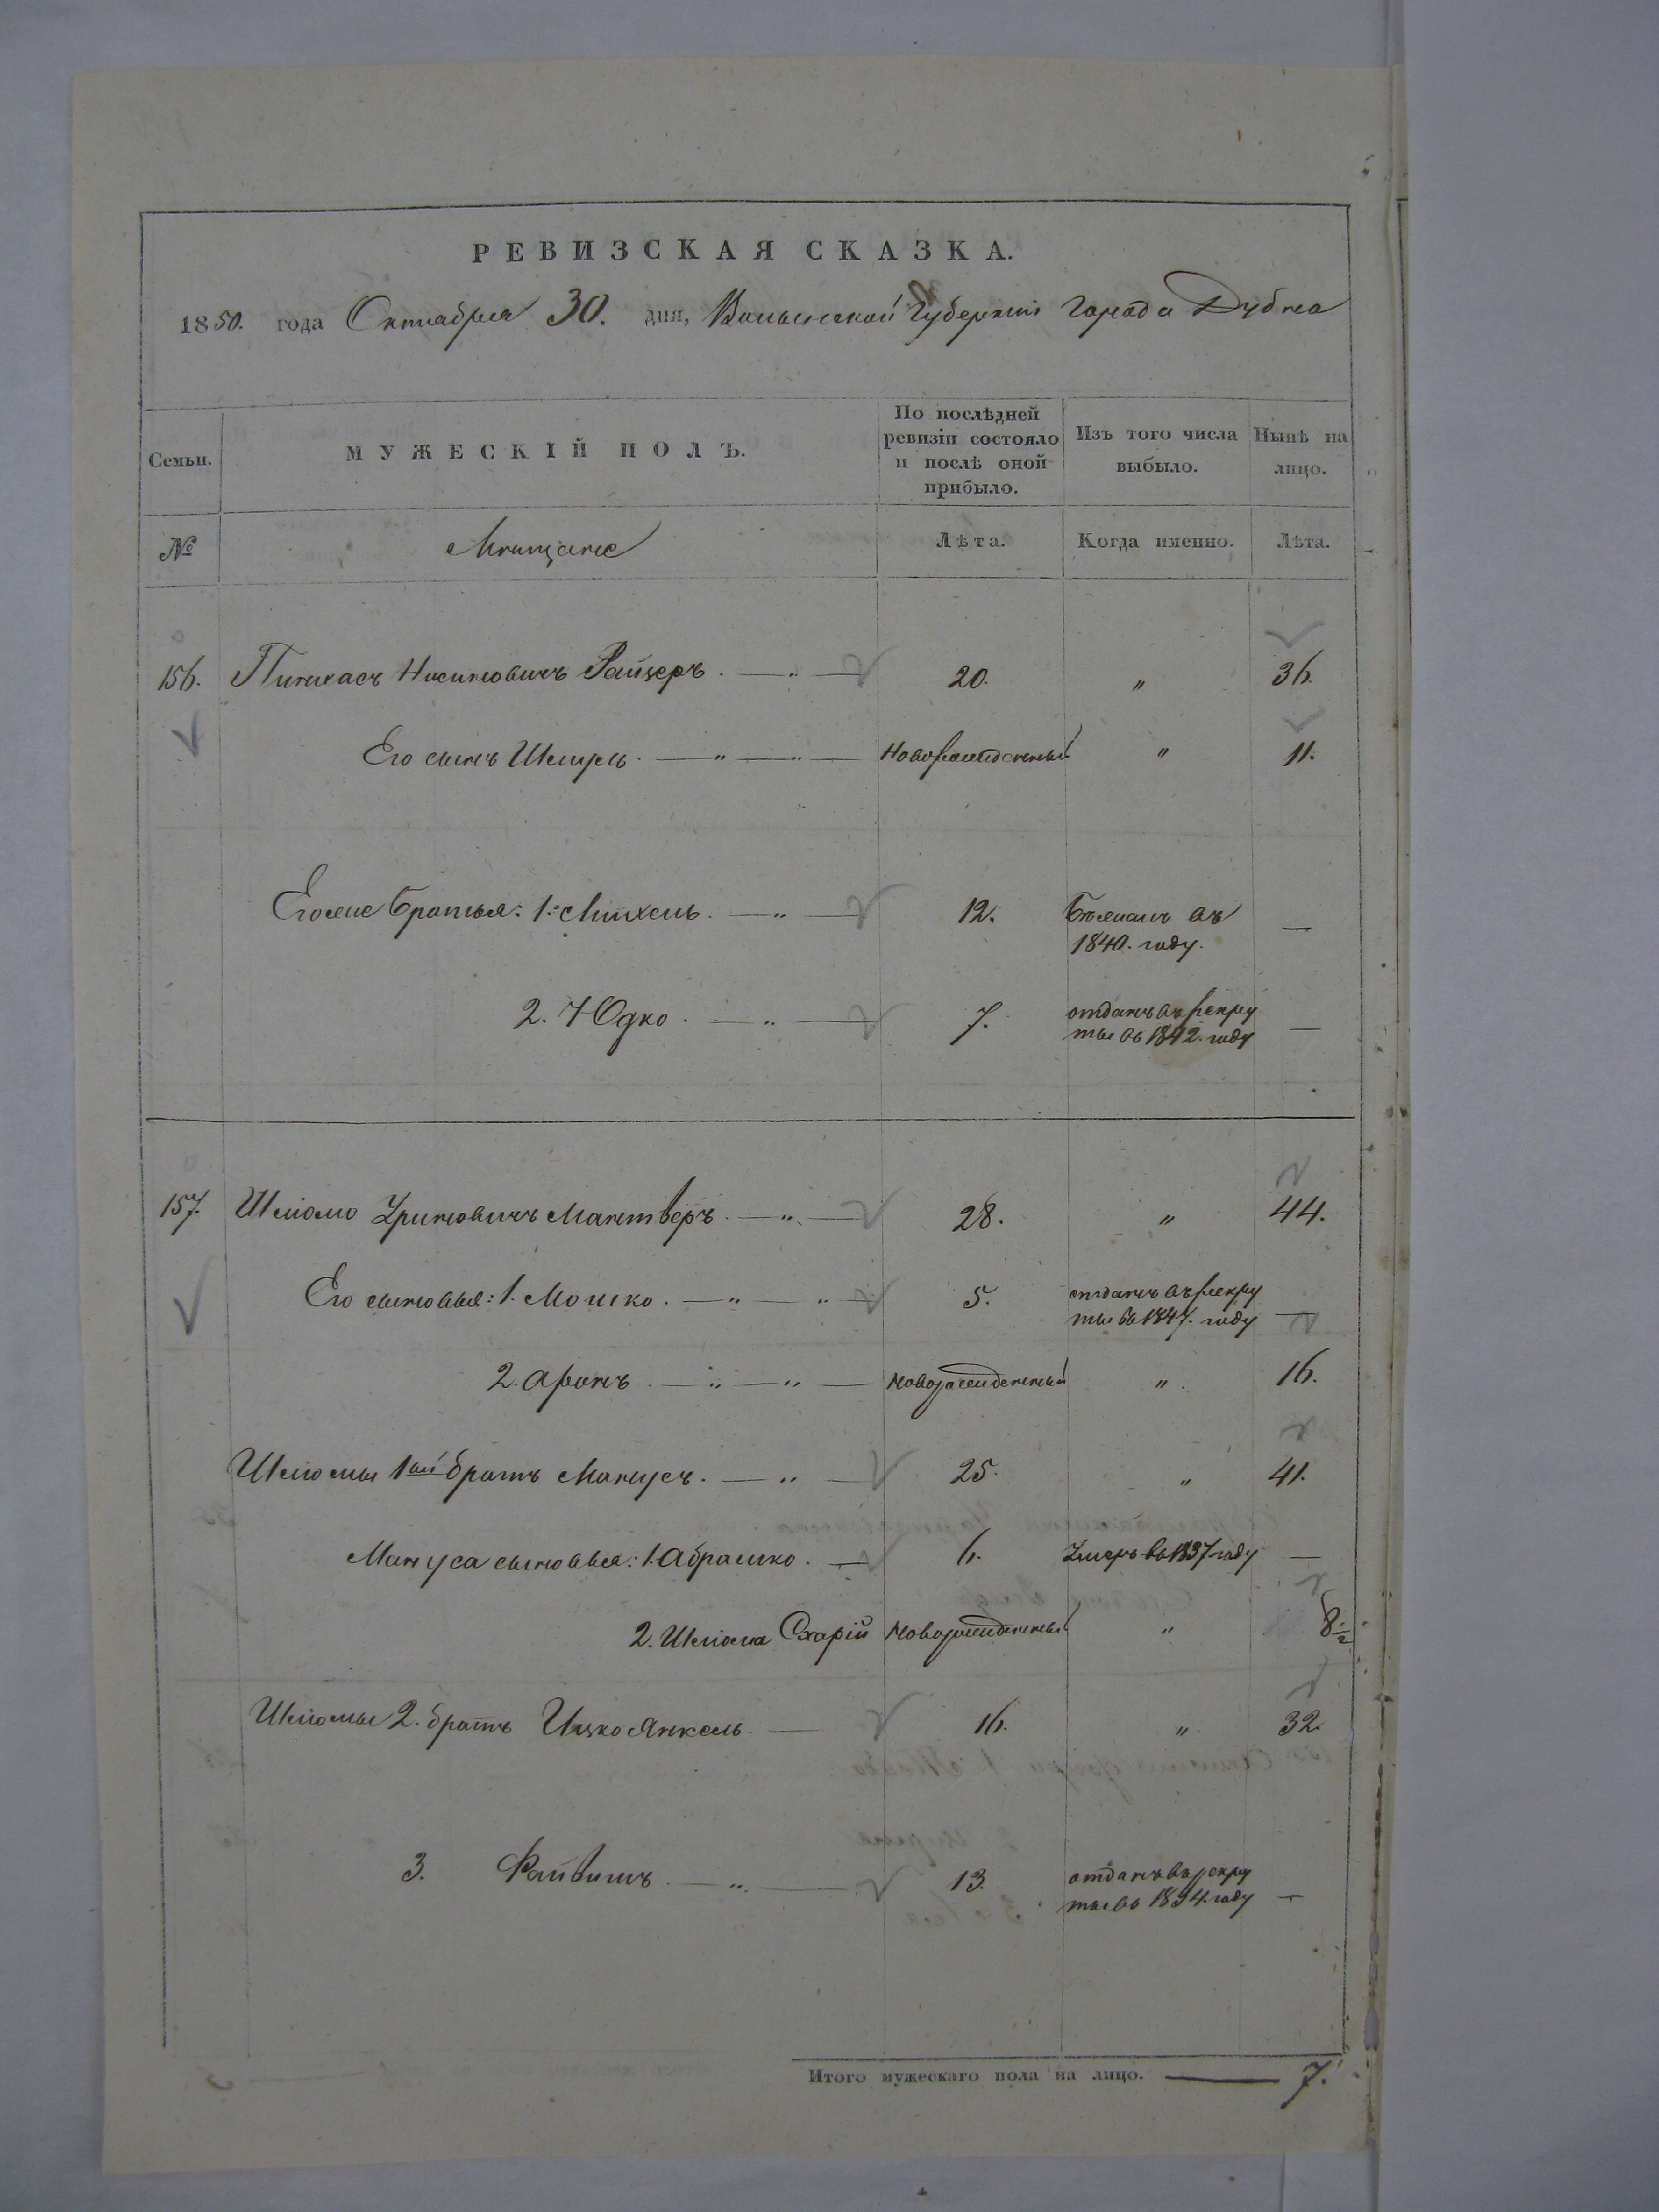 РЕВИЗСКАЯ СКАЗКА.
1850. года Октября 30. дня, Волынской Губерніи Города Дубна
Семьи. МУЖЕСКІЙ ПОЛЪ. По послѣдней ревизіи состояло и послѣ оной прибыло. Изъ того числа выбыло. Нынѣ на лицо.
№ Мѣщане Лѣта. Когда именно. Лѣта.
156. Пинхасъ Нисиновичъ Райцеръ. 20. " 36.
Его сынъ Шмуль. Новорожденный " 11.
Егоже братья: 1. Михель. 12. Бѣжалъ въ
1840. году. —
2. Юдко. 7. отданъ въ рекру
ты въ 1842. году —
157. Шліомо Уриновичъ Мантверъ. 28. " 44.
Его сыновья: 1. Мошко. 5. отданъ въ рекру
ты въ 1847. году —
2. Аронъ новорожденный " 16.
Шліомы 1ый братъ Манусъ. 25. " 41.
Мануса сыновья: 1. Абрамко. 6. Умеръ въ 1837 году —
2. Шліома новорожденный " 8 1/2
Шліомы 2. братъ Ицко Янкель 16. " 32.
3. Файвишъ 13. отданъ въ рекру
ты въ 1834. году —
Итого мужескаго пола на лицо. — 7.